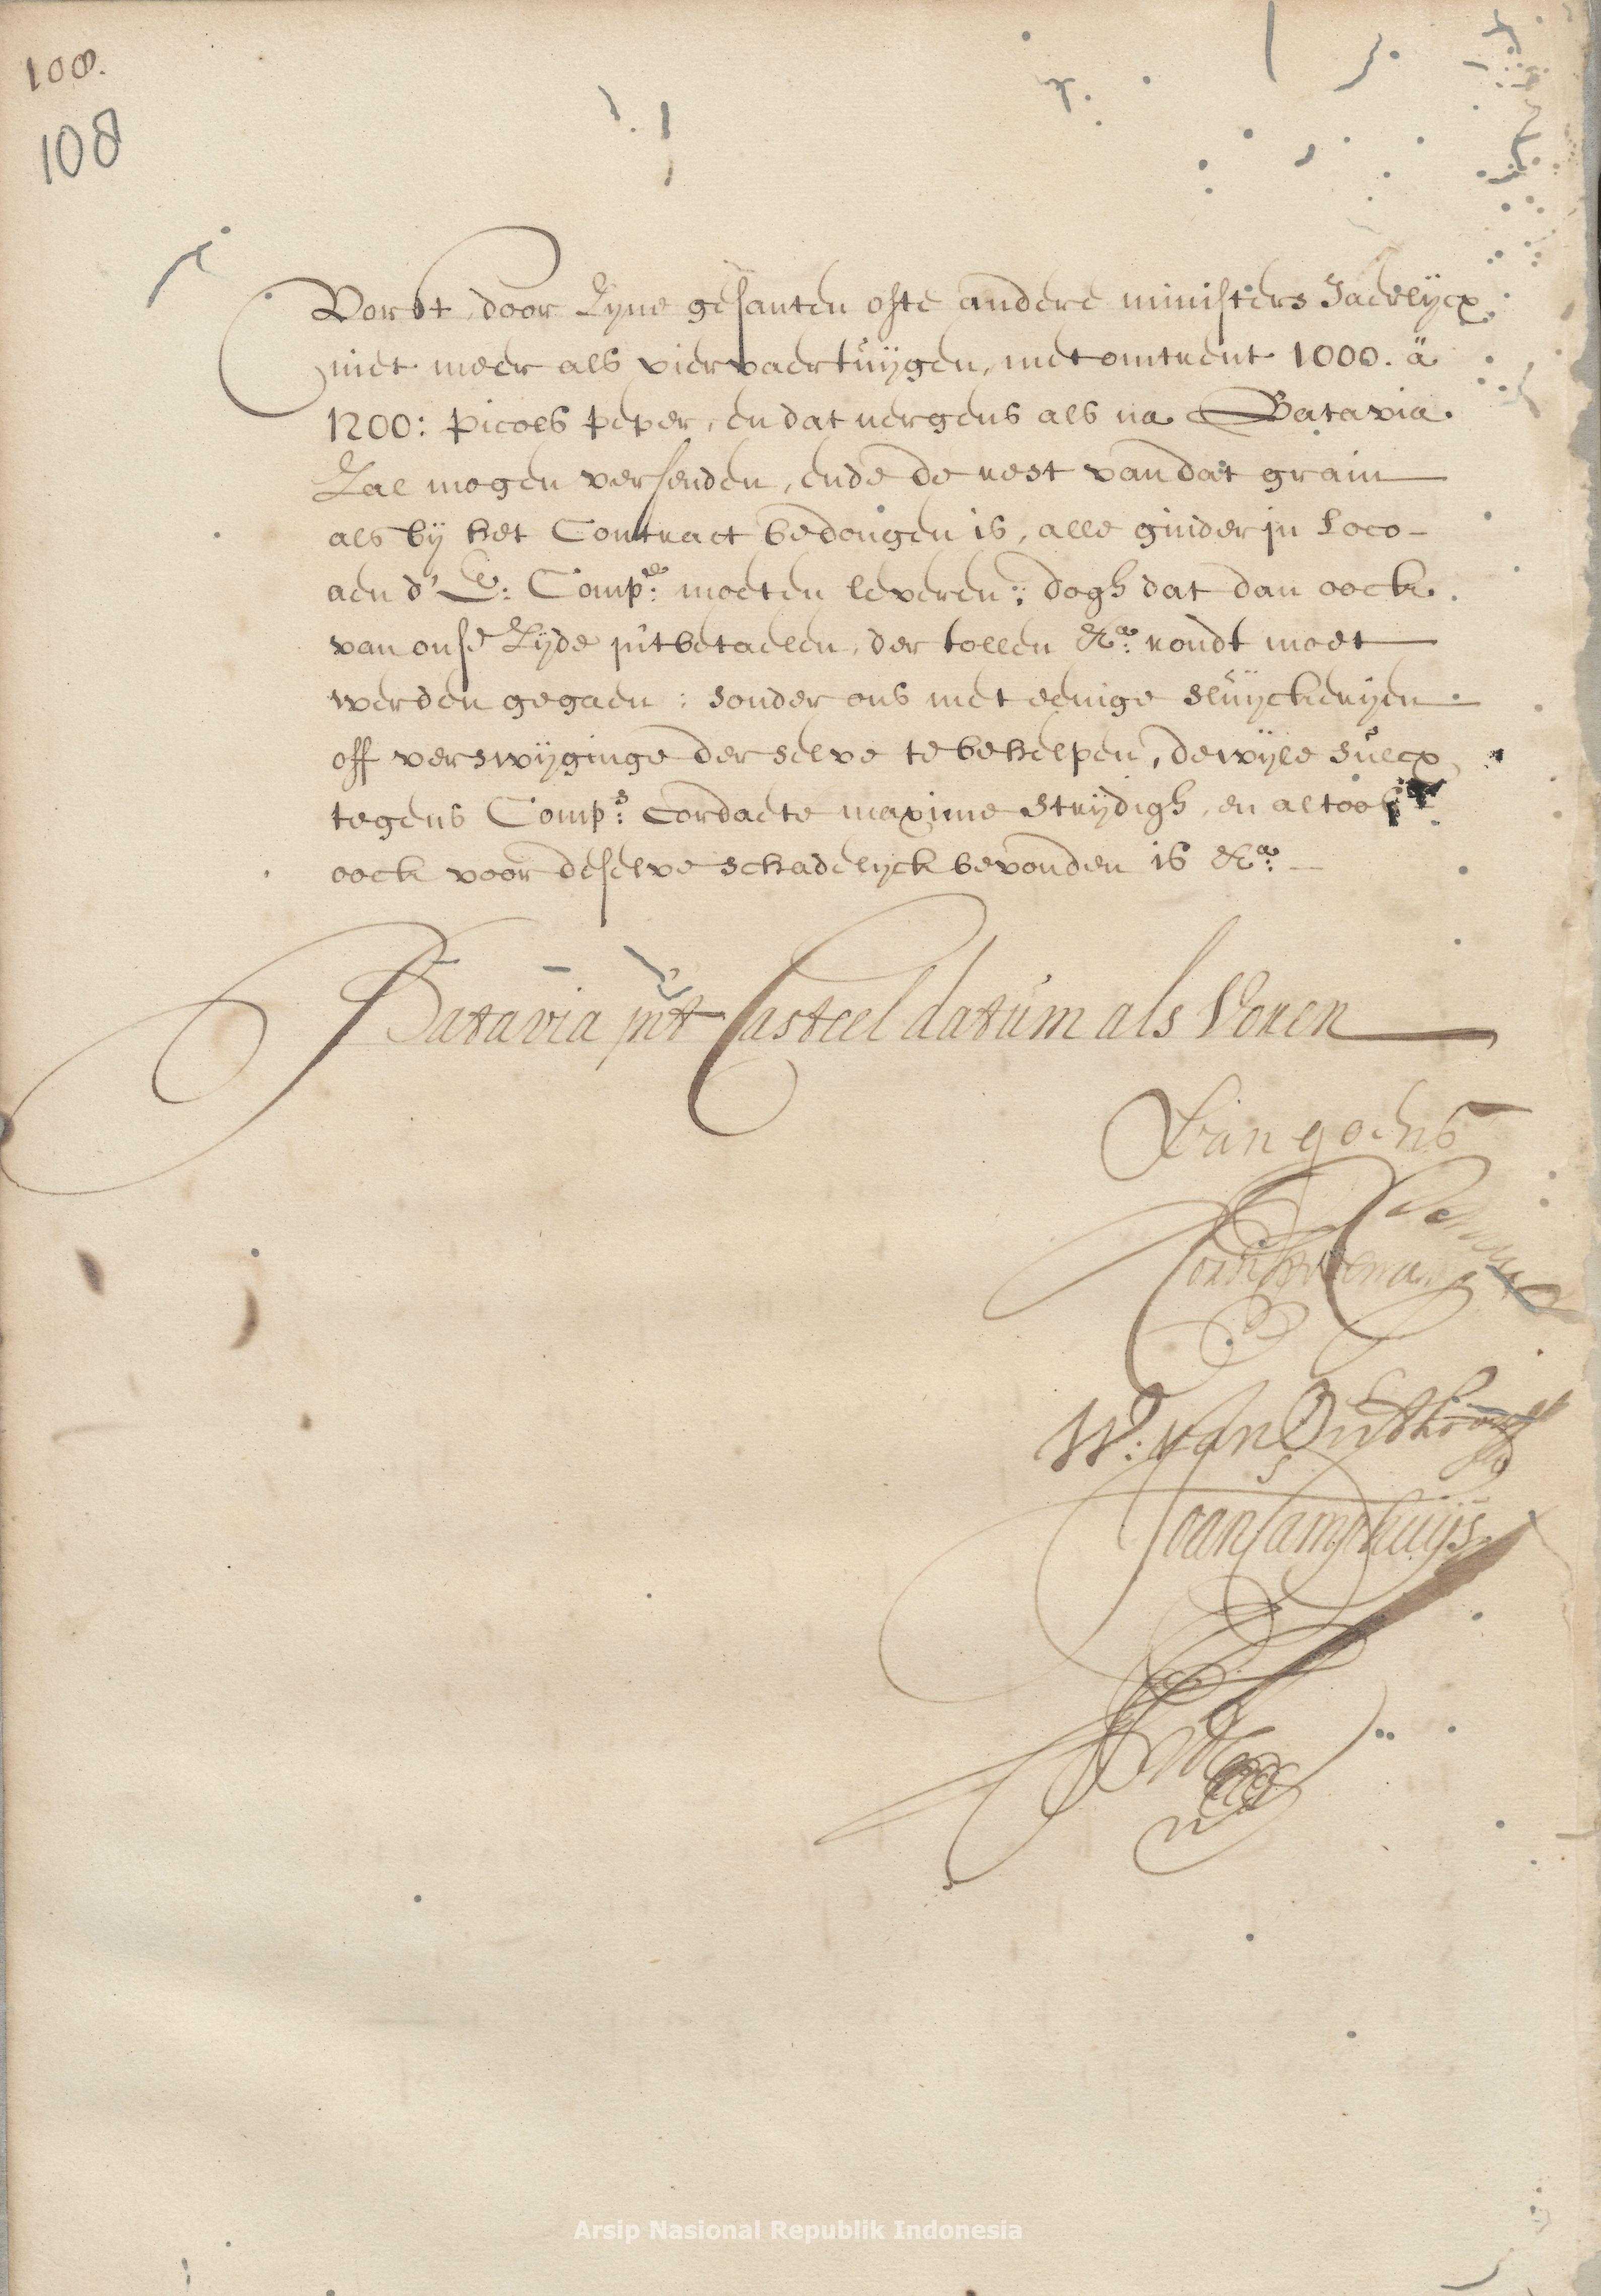 100.
108
Wordt, door Zyne gesanten ofte andere ministers Jaerlijcx
niet meer als vier vaertuijgen, met omtrent 1000. a
1200: picols peper, en dat nergens als na Batavia.
Zal mogen versenden, ende de rest van dat grain
als bij het Contract bedongen is, alle ginder in Loco
aen d' E: Comp:e moeten leveren; dogh dat dan oock
van onse Zyde int betaelen, der tollen &a: rondt moet
werden gegaen: sonder ons met eenige sluijckerijen
off verswijginge der selve te behelpen, dewijle sulcx
tegens Comp:s Cordaete maxime strijdigh, en altoos
oock voor deselve schadelijck bevonden is &a:
Batavia int Casteel datum als Voren
Van goens
W: van Outhoorn
Joan Camphuijs
Arsip Nasional Republik Indonesia